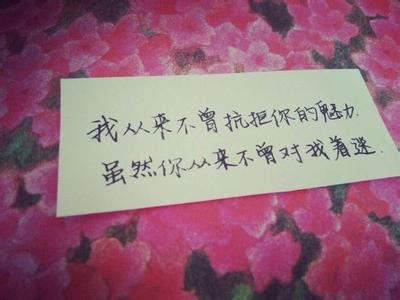 我从来不曾抗拒你的魅力.
虽然你从来不曾对我着迷.